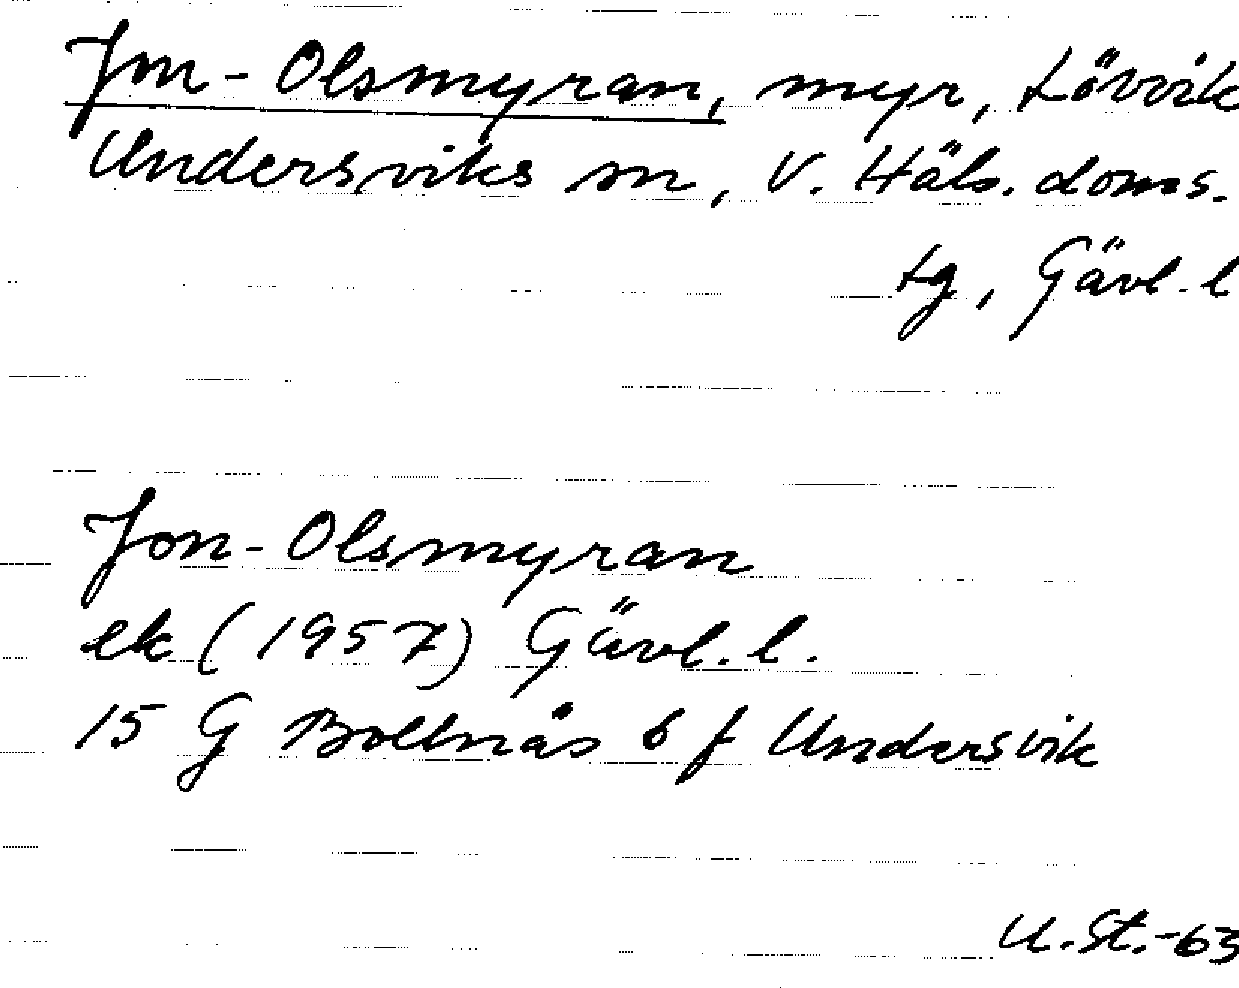 Jon-Olsmyran, myr, Lövvik
Undersviks sn, V. Häls. doms.
tg, Gävl. l
Jon-Olsmyran
ek (1957) Gävl. l.
15 G Bollnäs 6 f Undersvik
U.St.-63